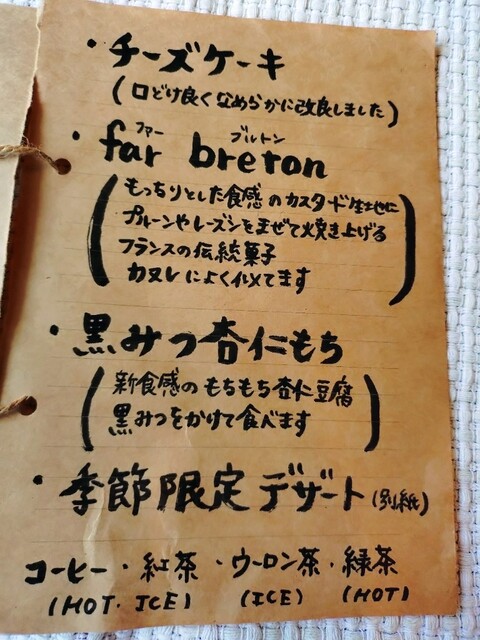 ・チーズケーキ
(口どけ良くなめらかに改良しました)
ファー ブルトン
・far breton
もっちりとした食感のカスタード生地に
プルーンやレーズンをまぜて焼き上げる
フランスの伝統菓子
カヌレによく似てます
・黒みつ杏仁もち
新食感のもちもち杏仁豆腐
黒みつをかけて食べます
・季節限定デザート(別紙)
コーヒー・紅茶・ウーロン茶・緑茶
(HOT・ICE) (ICE) (HOT)